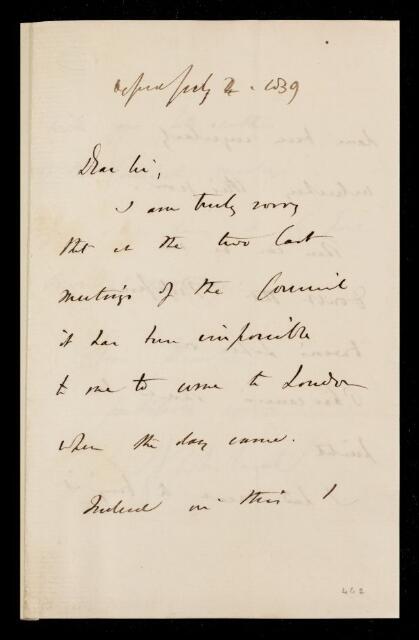 Oxford July 2. 1839
Dear Sir,
I am truly sorry
that at the two last
meetings of the Council
it has been impossible
to me to come to London
when the day came.
Indeed in this I
462